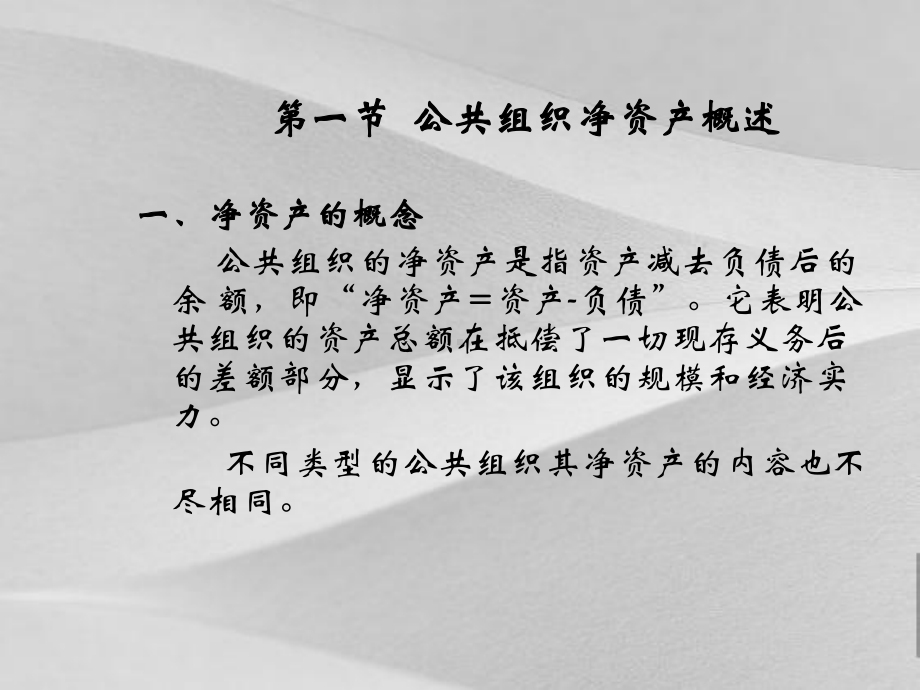 第一节 公共组织净资产概述
一、净资产的概念
公共组织的净资产是指资产减去负债后的
余 额，即“净资产=资产-负债”。它表明公
共组织的资产总额在抵偿了一切现存义务后
的差额部分，显示了该组织的规模和经济实
力。
不同类型的公共组织其净资产的内容也不
尽相同。